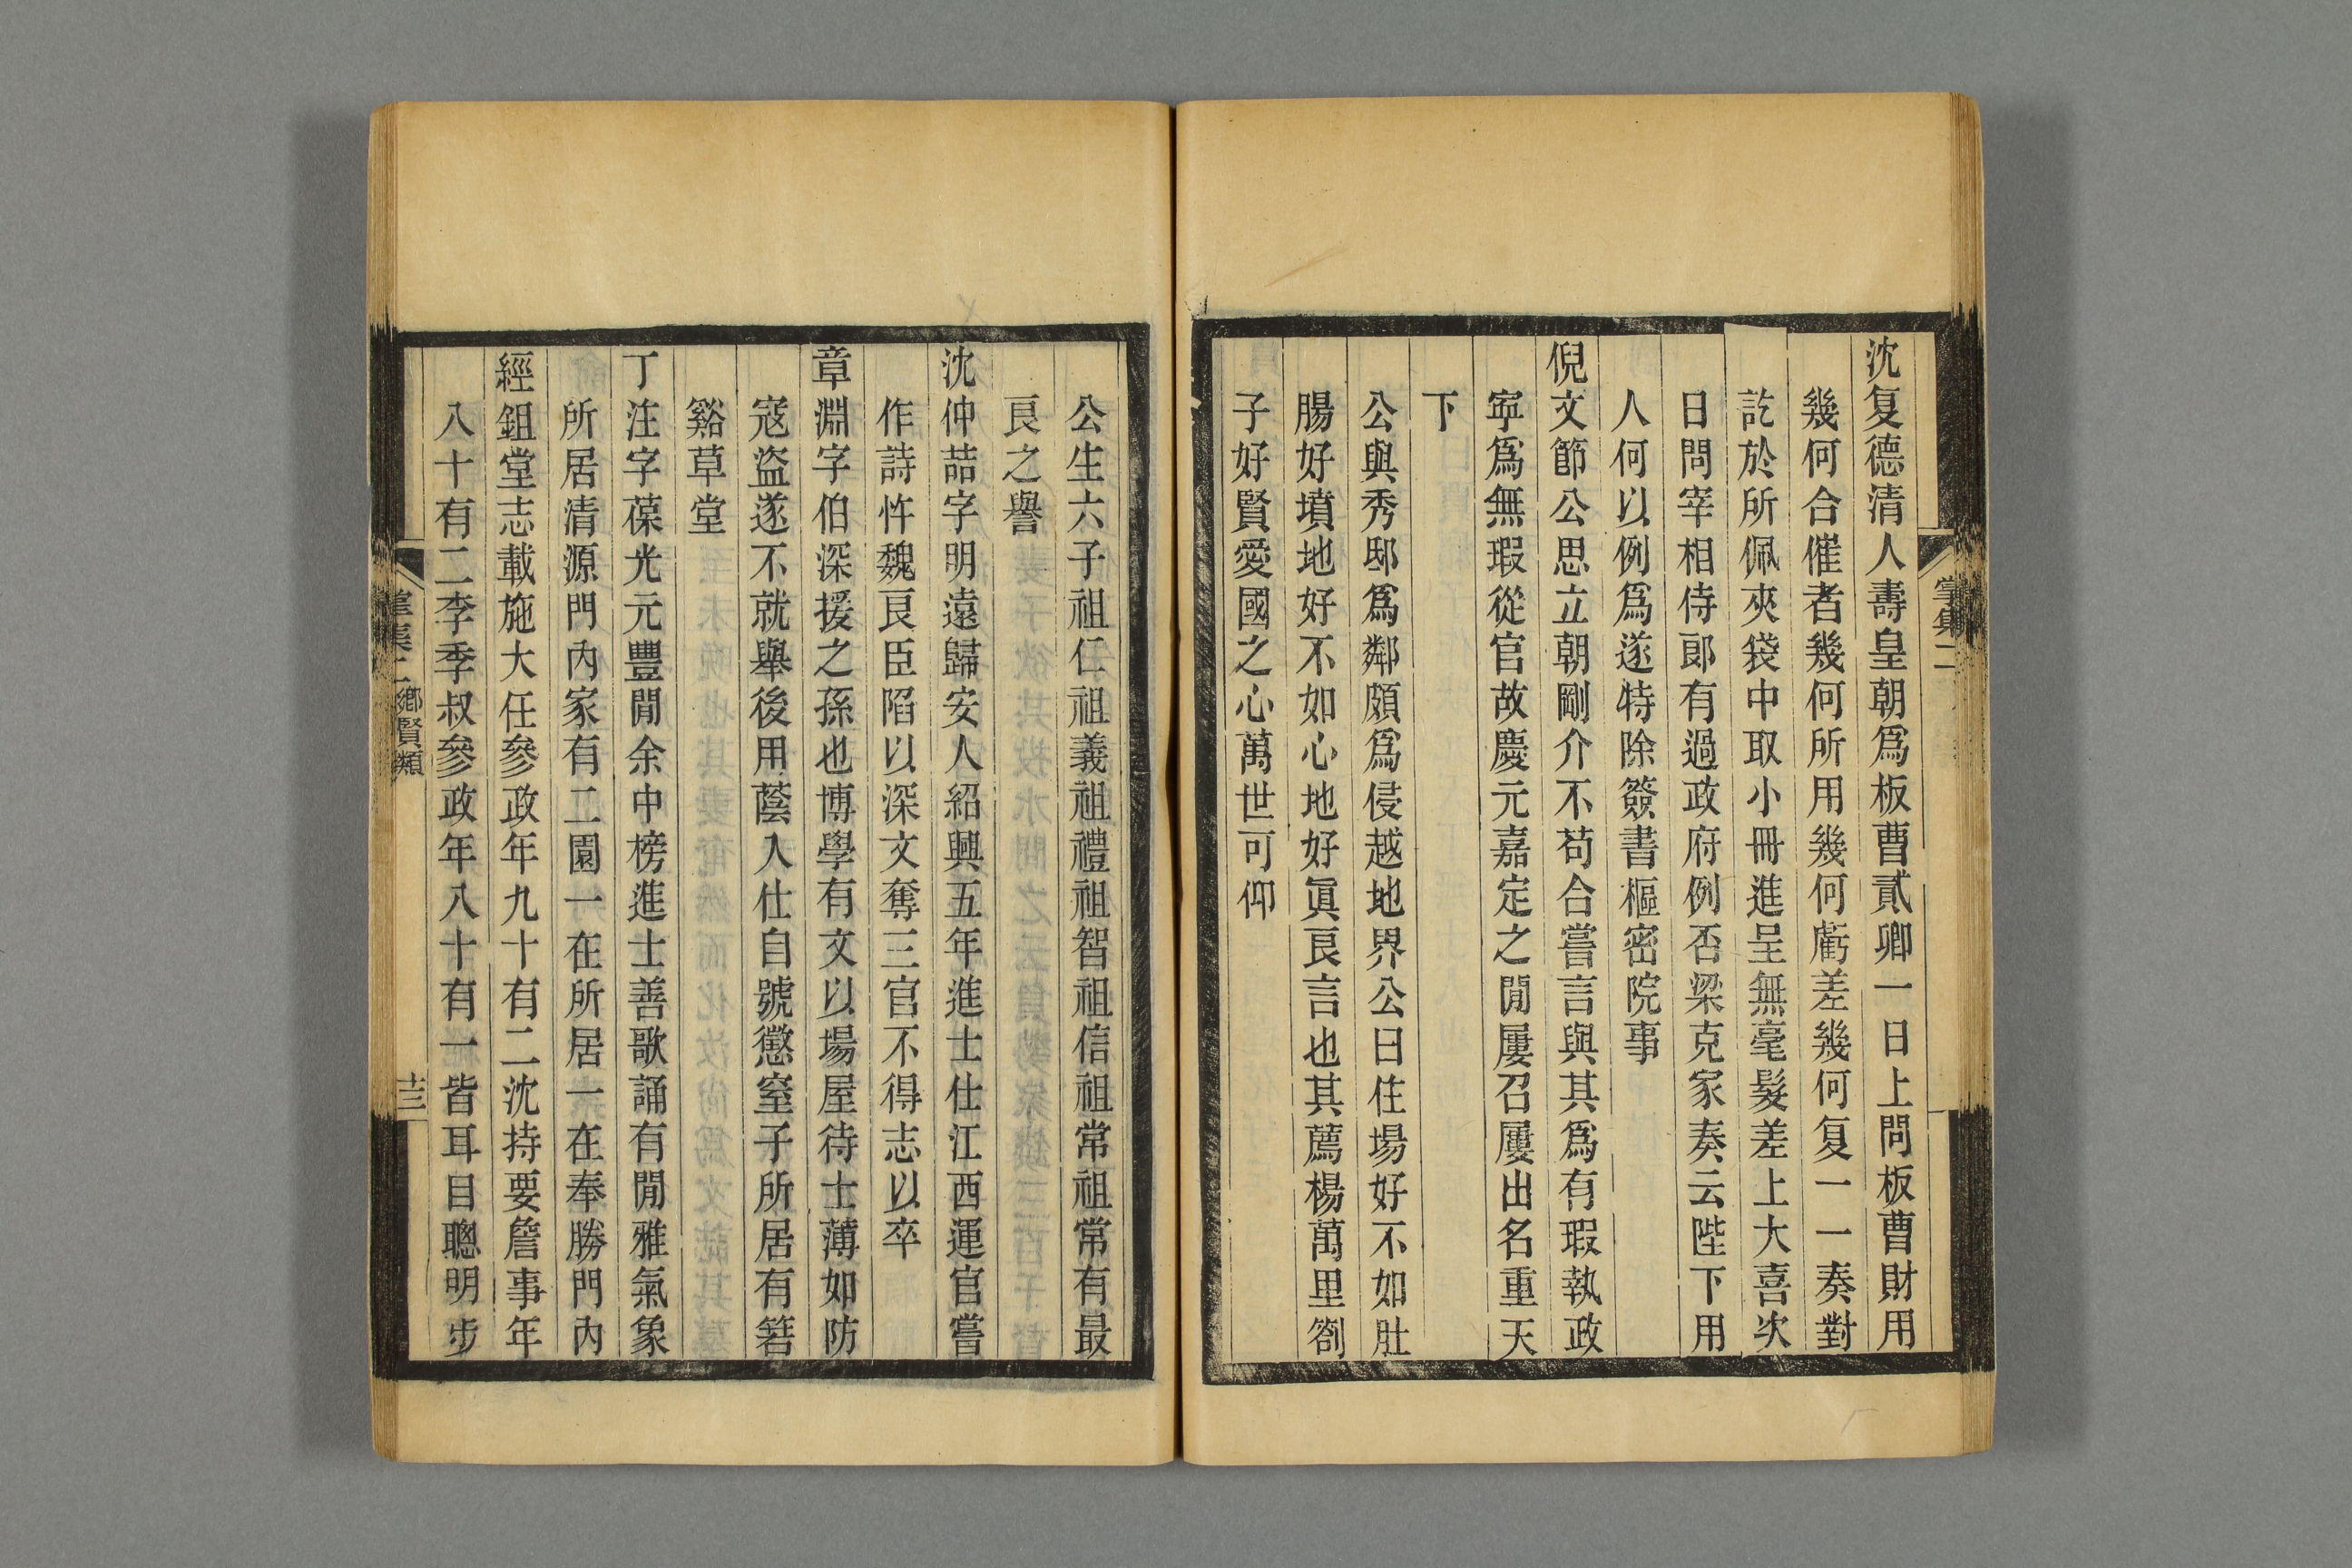 沈复德清人壽皇朝爲板曹貳卿一日上問板曹財用
幾何合催者幾何所用幾何虧差幾何复一一奏對
訖於所佩夾袋中取小冊進呈無毫髮差上大喜次
日問宰相侍郎有過政府例否梁克家奏云陛下用
人何以例爲遂特除簽書樞密院事
倪文節公思立朝剛介不苟合嘗言與其爲有瑕執政
寧爲無瑕從官故慶元嘉定之閒屢召屢出名重天
下
公與秀邸爲鄰頗爲侵越地界公曰住場好不如肚
腸好墳地好不如心地好眞良言也其薦楊萬里劄
子好賢愛國之心萬世可仰
公生六子祖仁祖義祖禮祖智祖信祖常祖常有最
良之譽
沈仲喆字明遠歸安人紹興五年進士仕江西運官嘗
作詩忤魏良臣陷以深文奪三官不得志以卒
章淵字伯深援之孫也博學有文以場屋待士薄如防
寇盜遂不就舉後用蔭入仕自號懲窒子所居有箬
谿草堂
丁注字葆光元豐閒余中榜進士善歌誦有閒雅氣象
所居清源門內家有二園一在所居一在奉勝門內
經鉏堂志載施大任參政年九十有二沈持要詹事年
八十有二李季叔參政年八十有一皆耳目聰明步
掌集二
鄉賢類
十三